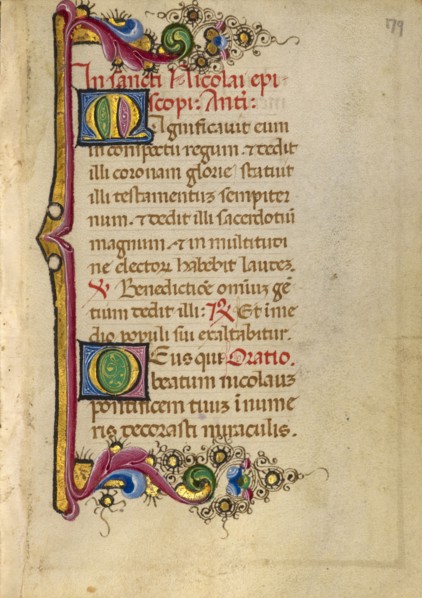 179
In sancti Nicolai epi
scopi: Anti:
Magnificauit eum
in conspectu regum. ⁊ dedit
illi coronam glorie statuit
illi testamentuz sempiter
num. ⁊ dedit illi sacerdotiū
magnum. ⁊ in multitudi
ne electorꝝ habebit laudez.
℣ Benedictiōe omniuz gē
tium dedit illi: ℟ Et i me
dio populi sui exaltabitur.
Deus qui Oratio.
beatum nicolauz
pontificem tuuz īnume
ris decorasti miraculis.